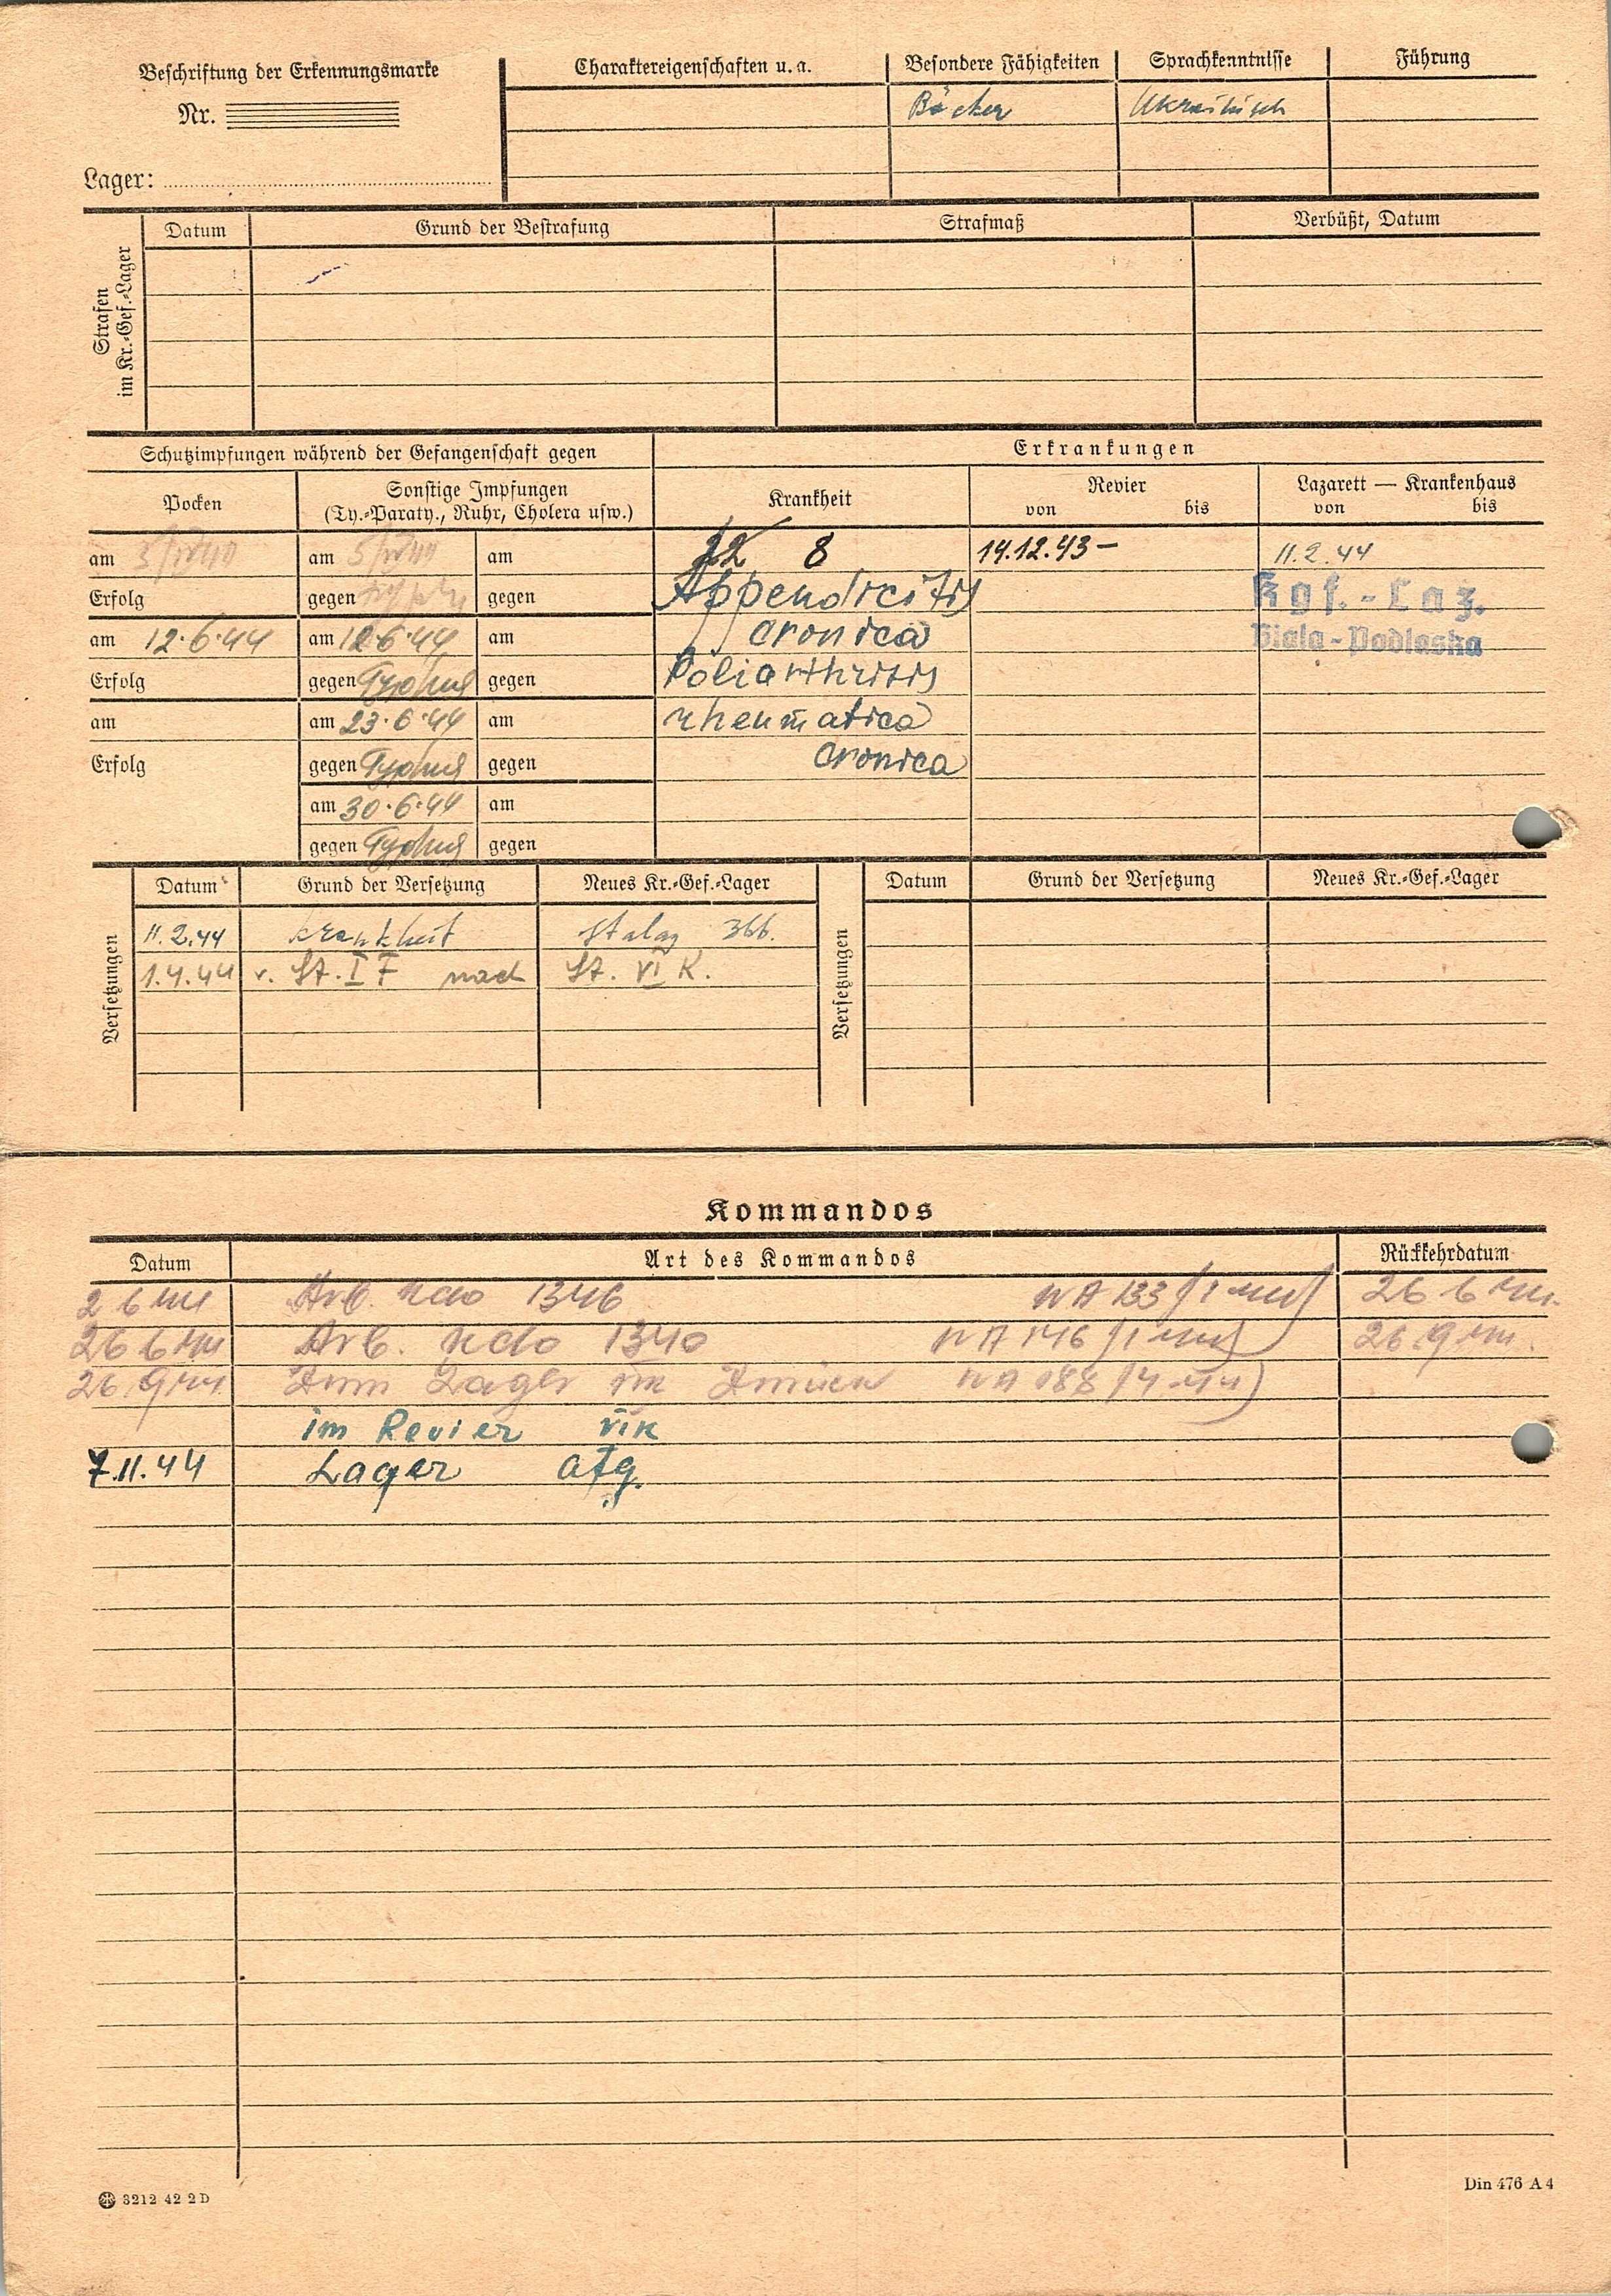 Beschriftung der Erkennungsmarke
Nr.
Lager:
Charaktereigenschaften u. a. Besondere Fähigkeiten Sprachkenntnisse Führung
Bäcker Ukrainisch
Strafen im Kr.-Gef.-Lager
Datum Grund der Bestrafung Strafmaß Verbüßt, Datum
Schutzimpfungen während der Gefangenschaft gegen
Pocken
Sonstige Impfungen
(Ty.-Paraty., Ruhr, Cholera usw.)
am am am
Erfolg gegen gegen
am 12.6.44 am 12.6.44 am
Erfolg gegen Typhus gegen
am am 23.6.44 am
Erfolg gegen Typhus gegen
am 30.6.44 am
gegen Typhus gegen
Erkrankungen
Krankheit Revier Lazarett — Krankenhaus
von bis von bis
22 8 14.12.43 – 11.2.44
Appendicitis Kgf.-Laz.
cronica Biala-Podlaska
Poliarthritis
rheumatica
cronica
Versetzungen
Datum Grund der Versetzung Neues Kr.-Gef.-Lager
11.2.44 Krankheit Stalag 366.
1.4.44 v. St. I F nach St. VI K.
Versetzungen
Datum Grund der Versetzung Neues Kr.-Gef.-Lager
Kommandos
Datum Art des Kommandos Rückkehrdatum
2 6 44 Arb. Kdo 1346 NA 133 26 6 44.
26 6 44 Arb. Kdo 1340 NA 146 26.9 44.
26.9 44 Lager NA 188
im Revier VIK
7.11.44 Lager atg.
3212 42 2 D
Din 476 A 4